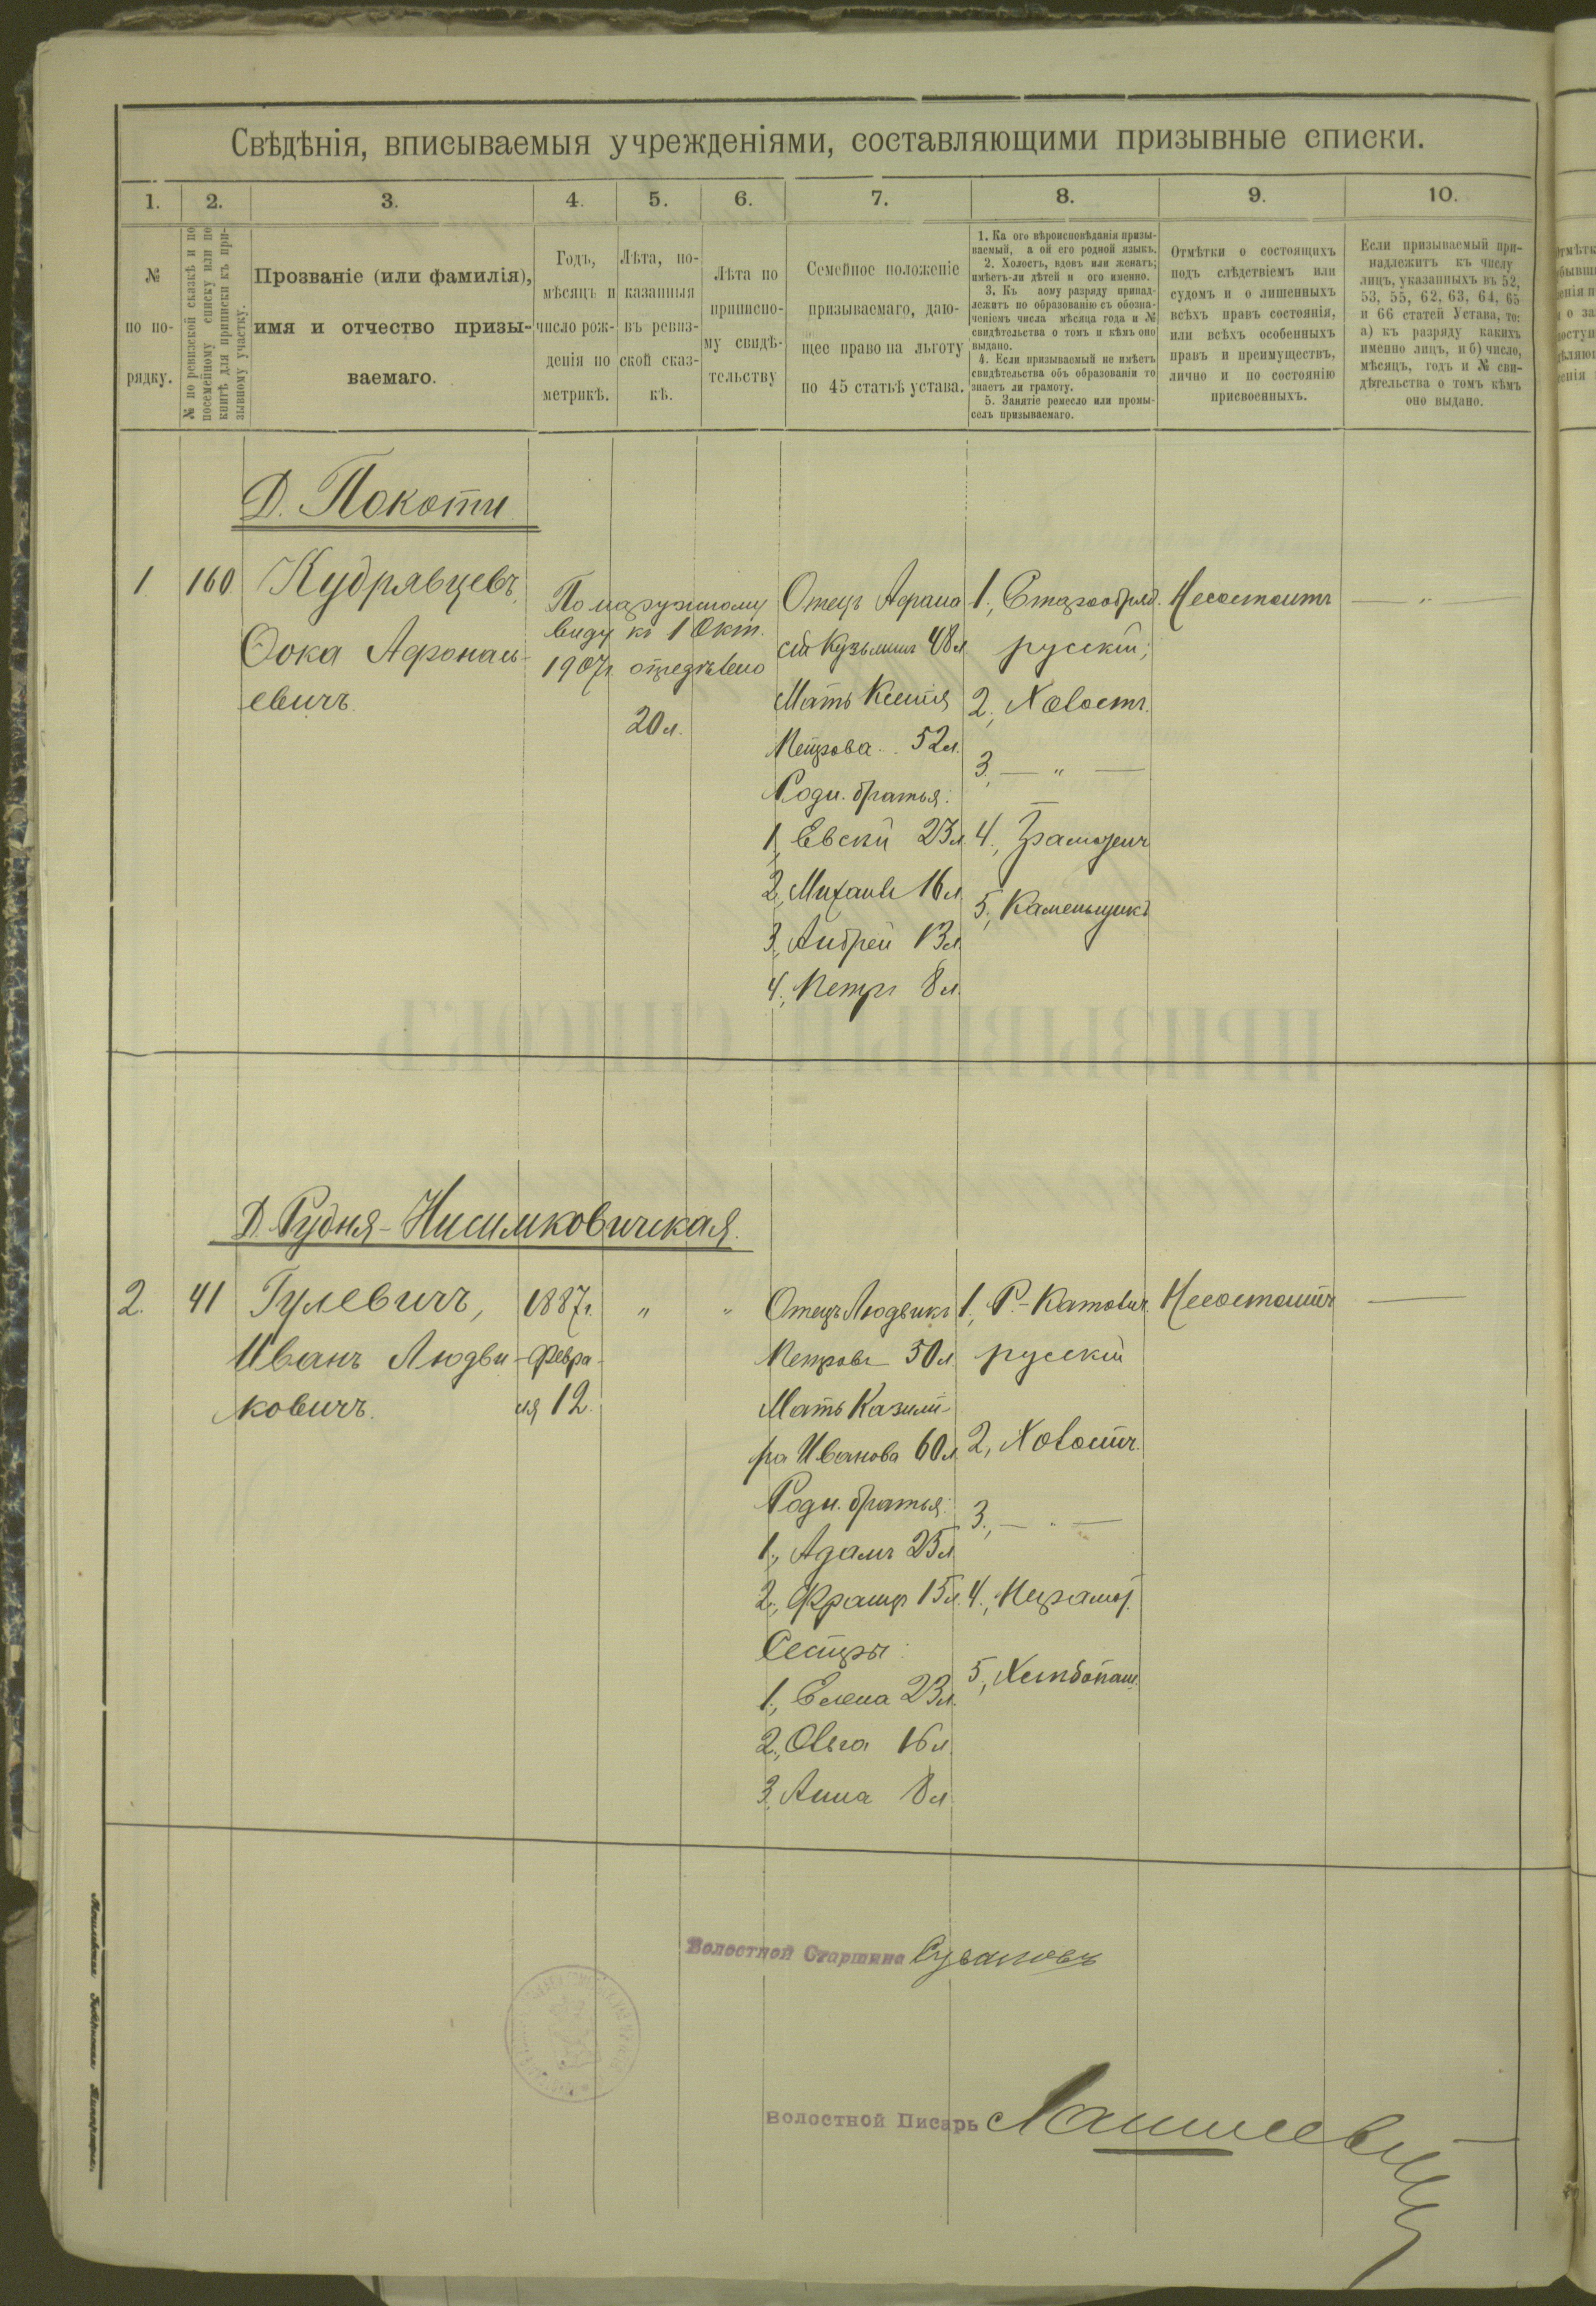 Свѣдѣнія, вписываемыя учрежденіями, составляющими призывные списки.
1. 2. 3. 4. 5. 6. 7. 8. 9. 10.
№
по по-
рядку.
№ по ревизской сказкѣ и по
посемейному списку или по
книгѣ для приписки къ при-
зывному участку.
Прозваніе (или фамилія),
имя и отчество призы-
ваемаго.
Годъ,
мѣсяцъ и
число рож-
денія по
метрикѣ.
Лѣта, по-
казанныя
въ ревиз-
ской сказ-
кѣ.
Лѣта по
приписно-
му свидѣ-
тельству
Семейное положеніе
призываемаго, даю-
щее право на льготу
по 45 статьѣ устава.
1. Ка ого вѣроисповѣданія призы-
ваемый, а ой его родной языкъ.
2. Холостъ, вдовъ или женатъ;
имѣетъ-ли дѣтей и ого именно.
3. Къ аому разряду принад-
лежитъ по образованію съ обозна-
ченіемъ числа мѣсяца года и №
свидѣтельства о томъ и кѣмъ оно
выдано.
4. Если призываемый не имѣетъ
свидѣтельства объ образованіи то
знаетъ ли грамоту.
5. Занятіе ремесло или промы-
селъ призываемаго.
Отмѣтки о состоящихъ
подъ слѣдствіемъ или
судомъ и о лишенныхъ
всѣхъ правъ состоянія,
или всѣхъ особенныхъ
правъ и преимуществъ,
лично и по состоянію
присвоенныхъ.
Если призываемый при-
надлежитъ къ числу
лицъ, указанныхъ въ 52,
53, 55, 62, 63, 64, 65
и 66 статей Устава, то:
а) къ разряду какихъ
именно лицъ, и б) число,
мѣсяцъ, годъ и № сви-
дѣтельства о томъ кѣмъ
оно выдано.
Д. Покоти
1 160 Кудрявцевъ,
Ѳока Афонась-
евичъ.
По наружному
виду къ 1 Окт.
1907г. опредѣлено
20 л.
Отецъ Афана
сій Кузьминъ 48 л
Мать Ксенія
Петрова 52 л.
Родн. братья:
1, Евсей 23 л.
2, Михаилъ 16 л.
3, Андрей 13 л.
4, Петръ 8 л.
1, Старообряд.
русскій;
2, Холостъ.
3, — „ —
4, Грамотенъ
5, Каменьщикъ
Несостоитъ — „ —
Д. Рудня-Нисимковичская.
2. 41 Гулевичъ,
Иванъ Людви-
ковичъ.
1887г.
Февра-
ля 12.
„ „
Отецъ Людвикъ
Петровъ 50 л
Мать Казими-
ра Иванова 60 л
Родн. братья:
1, Адамъ 25 л
2, Францъ 15 л.
Сестры:
1, Елена 23 л.
2, Ольга 16 л.
3, Анна 8 л.
1, Р.-Католич.
русскій
2, Холостъ.
3, — „ —
4, Неграмот.
5, Хлѣбопаш.
Несостоитъ —
Волостной Старшина
Волостной Писарь
Могилевская Губернская Типографія.